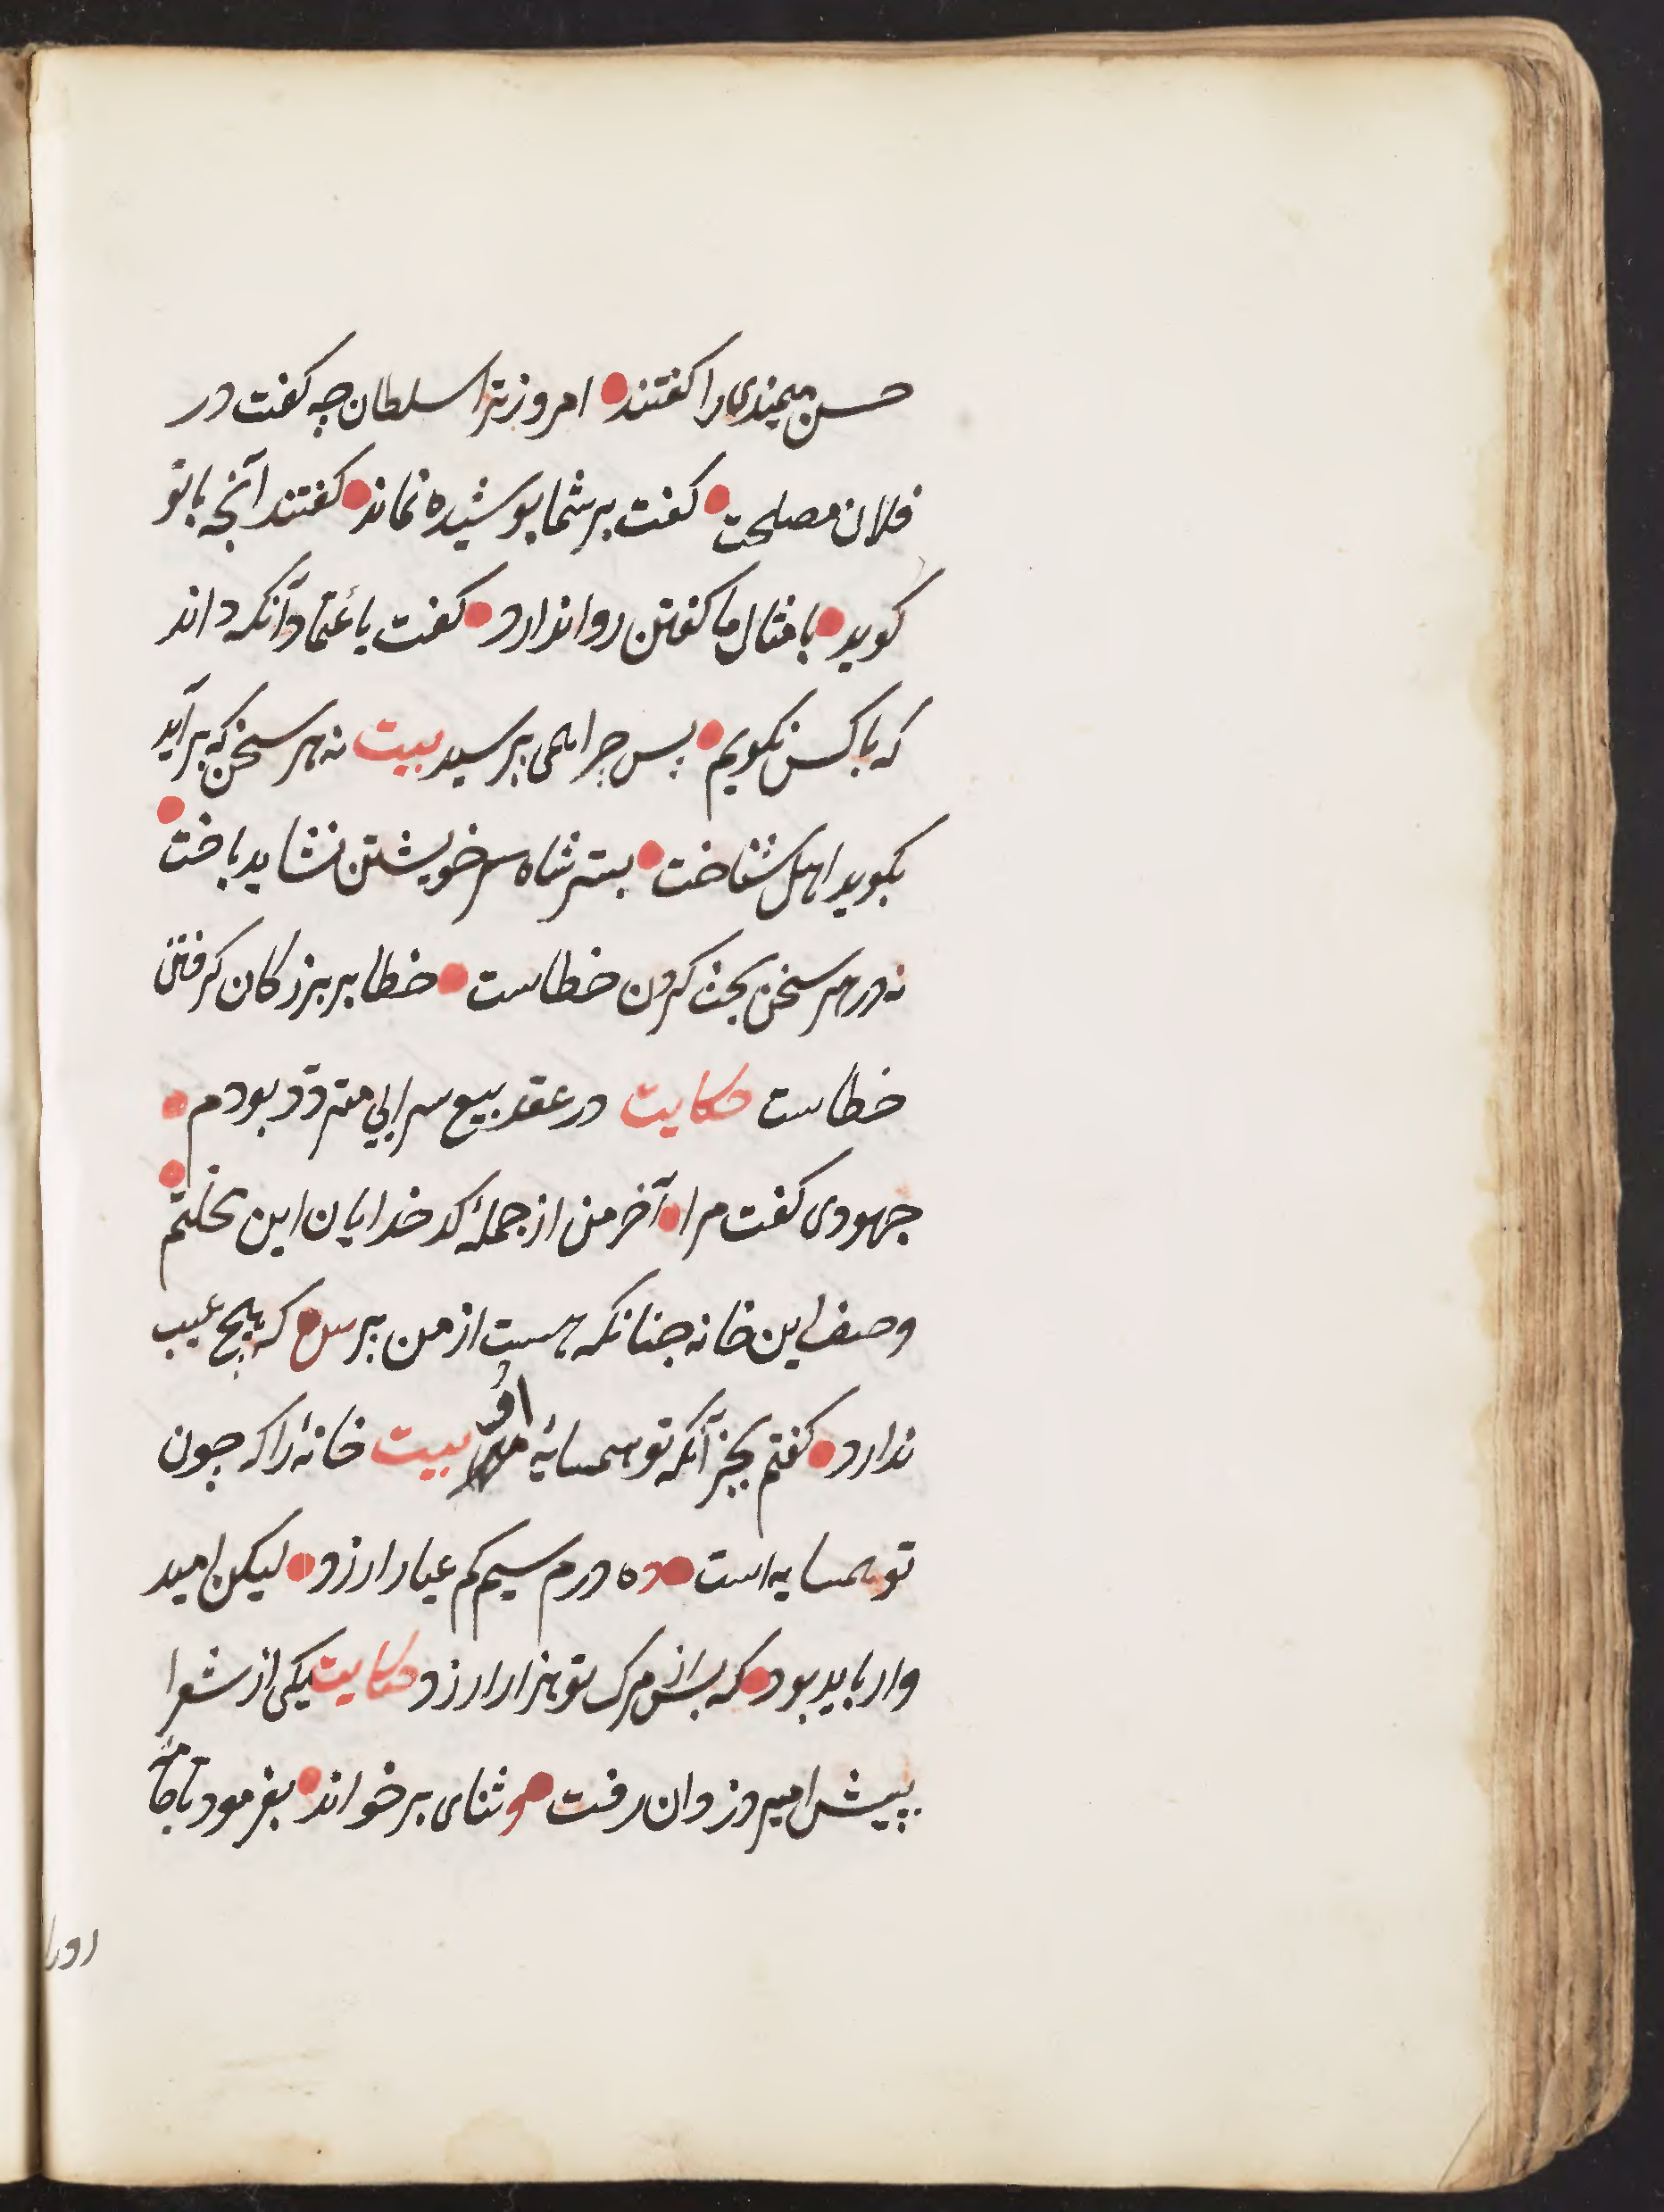 حسن میمندی را کفتند امروز ترا سلطان چه کفت در
فلان مصلحت کفت بر شما پوشیده نماند کفتند آنچه با تو
کوید بامثال ما کفتن روا ندارد کفت باعتماد آنکه داند
که با کس نکویم پس چرا همی پرسید بیت نه هر سخن که بر آید
بکوید اهل شناخت بسر شاه سر خویشتن نشاید باخت
نه در هر سخن بحث کردن خطاست خطا بر بزرکان کرفتن
خطاست حکایت در عقد بیع سرایی متردّد بودم
جهودی کفت مرا آخر من از جملهٔ کدخدایان این محلتم
وصف این خانه جنانکه هست از من بپرس که هیچ عیب
ندارد کفتم بجز آنکه تو همسایهٔ اوُ بیت خانهٔ را که چون
تو همسایه است ده درم سیم کم عیار ارزد لیکن امید
وار باید بود که پس از مرک تو هزار ارزد حکایت یکی از شعرا
پیش امیر دزدان رفت و ثنای بر خواند بفرمود تا جامه